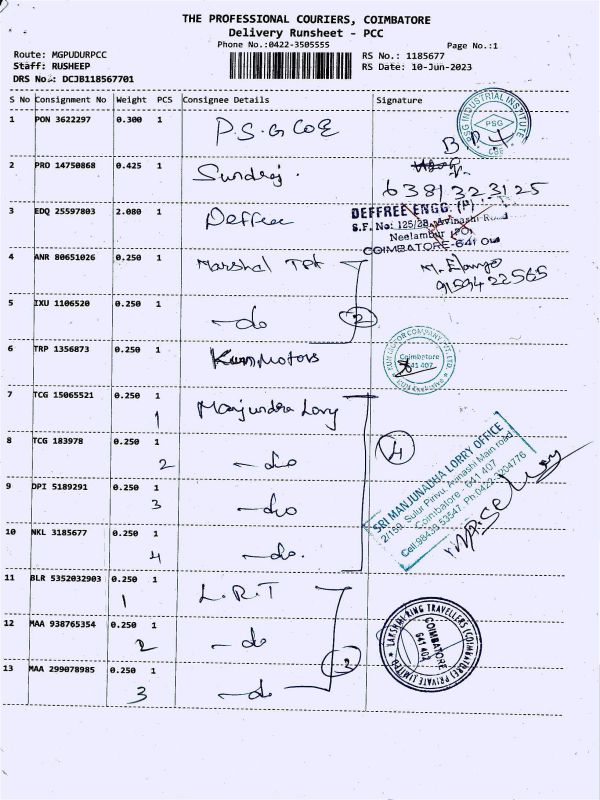 THE PROFESSIONAL COURIERS, COIMBATORE
Delivery Runsheet - PCC
Phone No.:0422-3505555
Page No.:1
Route: MGPUDURPCC
RS No.: 1185677
Staff: RUSHEEP
RS Date: 10-Jun-2023
DRS No.: DCJB118567701
S No Consignment No Weight PCS Consignee Details Signature
1 PON 3622297 0.300 1 P.S.G COE
PSG INDUSTRIAL INSTITUTE
PSG
CBE
2 PRO 14750868 0.425 1 Sundraj.
6381323125
3 EDQ 25597803 2.080 1 Deffree
DEFFREE ENGG. (P)
S.F. No: 125/2B, Avinashi Road
Neelambur (PO)
COIMBATORE-641 0
4 ANR 80651026 0.250 1 Marshal TPt
M. Elango
9159422565
5 IXU 1106520 0.250 1 -do 2
6 TRP 1356873 0.250 1 Kunmotors
KUN MOTOR COMPANY PVT. LTD.
Coimbatore
641 407
7 TCG 15065521 0.250 1 Manjundra Lorry
1
8 TCG 183978 0.250 1 -do 4
2
SRI MANJUNADHA LORRY OFFICE
2/159, Sulur Pirivu, Avinashi Main road
Coimbatore - 641 407
Cell:98439 53547 Ph.0422-3204776
9 DPI 5189291 0.250 1 -do
3
10 NKL 3185677 0.250 1 -do.
4
11 BLR 5352032903 0.250 1 L.R.T
1
12 MAA 938765354 0.250 1 -do
2
LAKSHMI RING TRAVELLERS (COIMBATORE) PRIVATE LIMITED
COIMBATORE
641 402
13 MAA 299078985 0.250 1 -do
3